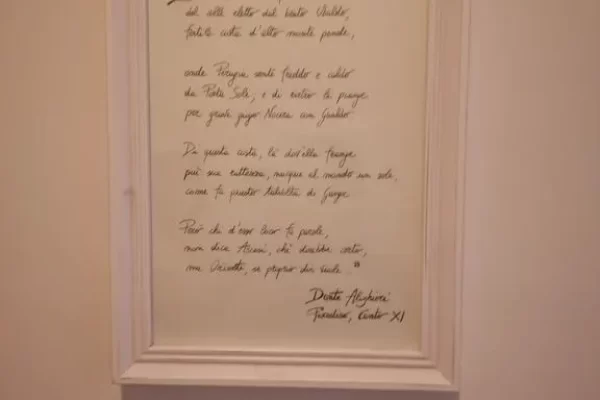 del colle eletto dal beato Ubaldo,
fertile costa d'alto monte pende,
onde Perugia sente freddo e caldo
da Porta Sole; e di rietro le piange
per grave giogo Nocera con Gualdo.
Di questa costa, là dov'ella frange
più sua rattezza, nacque al mondo un sole,
come fa questo talvolta di Gange.
Però chi d'esso loco fa parole,
non dica Ascesi, ché direbbe corto,
ma Oriente, se proprio dir vuole.
Dante Alighieri
Paradiso, Canto XI